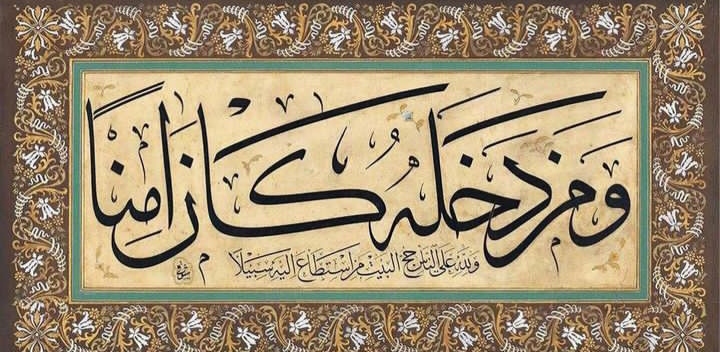 وَمَن دَخَلَهُ كَانَ اٰمِنًا
وَلِلّٰهِ عَلَى النَّاسِ حِجُّ الْبَيْتِ مَنِ اسْتَطَاعَ اِلَيْهِ سَبِيلًا